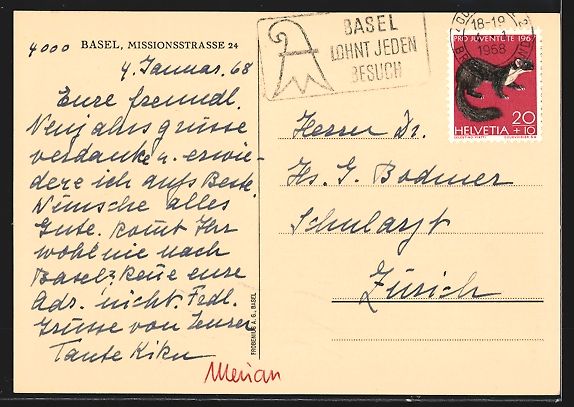 4000 BASEL, MISSIONSSTRASSE 24
4. Januar. 68
Eure freundl.
Neujahrsgrüsse
verdanke u. erwie-
dere ich aufs Beste.
Wünsche alles
Gute. Komt Ihr
wohl nie nach
Basel? Kene eure
Adr. nicht. Fedl.
Grüsse von Eurer
Tante Kiku
Merian
FROBENIUS A.G. BASEL
BASEL
LOHNT JEDEN
BESUCH
18-19
1968
PRO JUVENTUTE 1967
20
HELVETIA +10
Herrn Dr.
Hs. G. Bodmer
Schularzt
Zürich